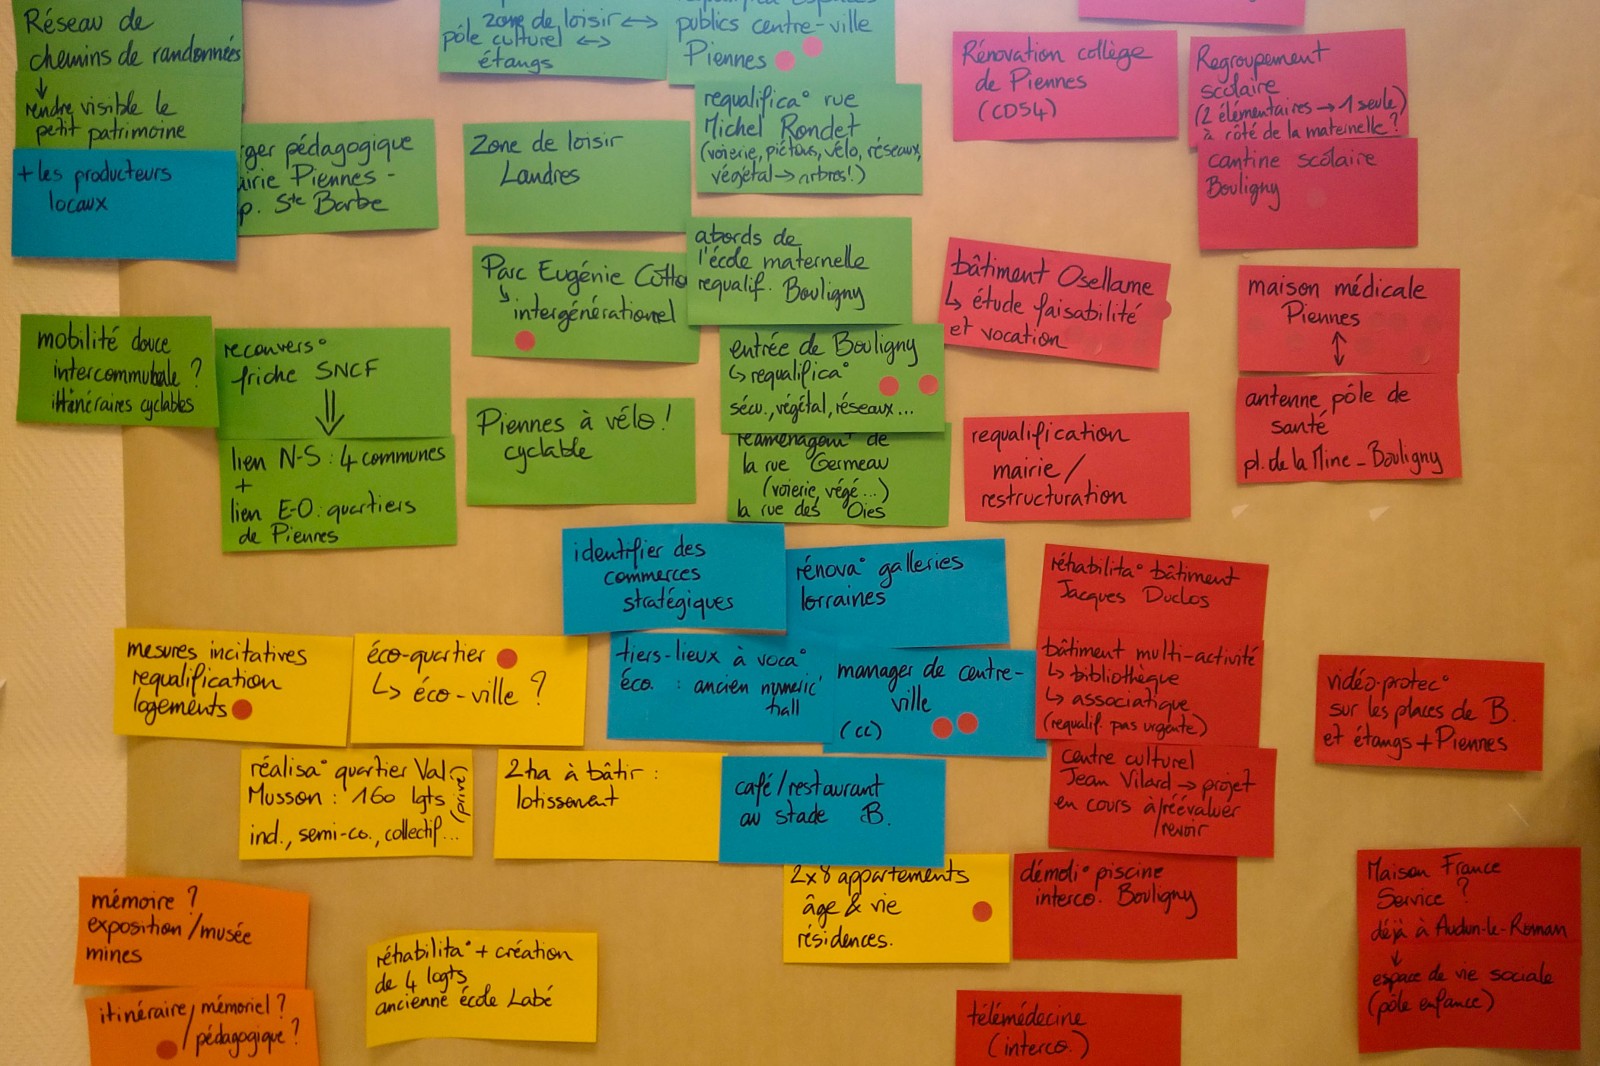 Réseau de
chemins de randonnées
↓
rendre visible le
petit patrimoine
+ les producteurs
locaux
pédagogique
Piennes -
Ste Barbe
zone de loisir ↔
pôle culturel ↔
étangs
publics centre-ville
Piennes
requalifica° rue
Michel Rondet
(voierie, piétons, vélo, réseaux,
végétal → arbres!)
Zone de loisir
Landres
Parc Eugénie
↳ intergénérationnel
abords de
l'école maternelle
requalif. Bouligny
entrée de Bouligny
↳ requalifica°
sécu., végétal, réseaux...
Piennes à vélo !
cyclable
réaménagemt de
la rue Germeau
(voierie, végé...)
la rue des Oies
mobilité douce
intercommunale ?
itinéraires cyclables
reconvers°
friche SNCF
⇓
lien N-S : 4 communes
+
lien E-O : quartiers
de Piennes
Rénovation collège
de Piennes
(CD54)
Regroupement
scolaire
(2 élémentaires → 1 seule)
à côté de la maternelle ?
cantine scolaire
Bouligny
bâtiment Osellame
↳ étude faisabilité
et vocation
maison médicale
Piennes
↕
antenne pôle de
santé
pl. de la Mine - Bouligny
requalification
mairie /
restructuration
identifier des
commerces
stratégiques
rénova° galleries
lorraines
tiers-lieux à voca°
éco. : ancien numeric'
hall
manager de centre-
ville
(cc)
café/restaurant
au stade B.
réhabilita° bâtiment
Jacques Duclos
bâtiment multi-activité
↳ bibliothèque
↳ associatique
(requalif. pas urgente)
centre culturel
Jean Vilard → projet
en cours à/réévaluer
/revoir
démoli° piscine
interco. Bouligny
vidéo-protec°
sur les places de B.
et étangs + Piennes
Maison France
Service ?
déjà à Audun-le-Roman
↓
espace de vie sociale
(pôle enfance)
télémédecine
(interco.)
mesures incitatives
requalification
logements
éco-quartier
↳ éco-ville ?
réalisa° quartier Val
Musson : 160 lgts
ind., semi-co., collectif...
2ha à bâtir :
lotissement
2x8 appartements
âge & vie
résidences.
réhabilita° + création
de 4 logts
ancienne école Labé
mémoire ?
exposition/musée
mines
itinéraire/mémoriel ?
/pédagogique ?